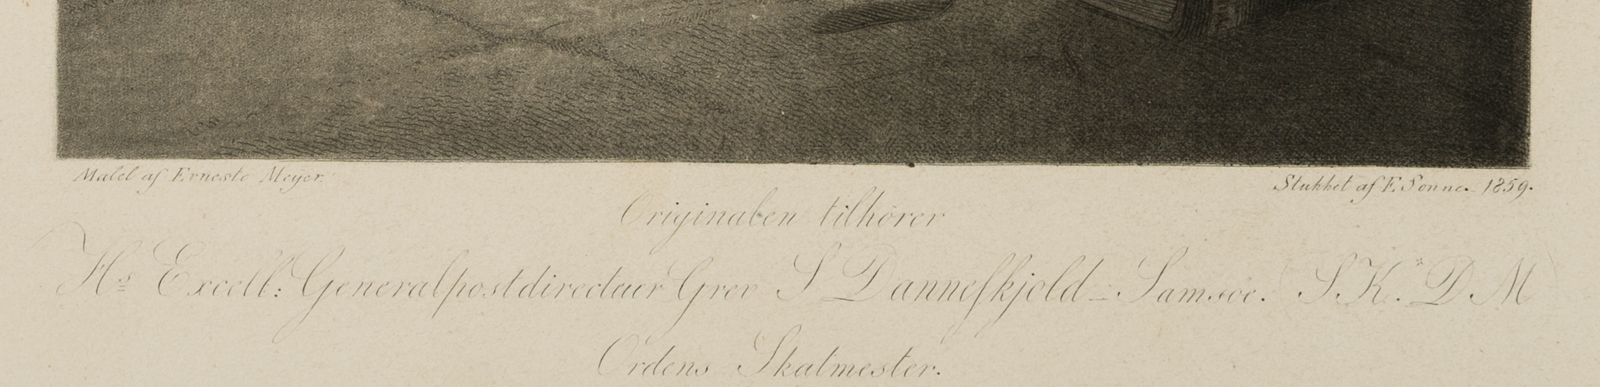 Malet af Ernesto Meyer.
Stukket af F. Sonne. 1859.
Originalen tilhörer
Hs Excell: Generalpostdirecteur Grev S Danneskjold-Samsöe. S.K. D M
Ordens Skatmester.